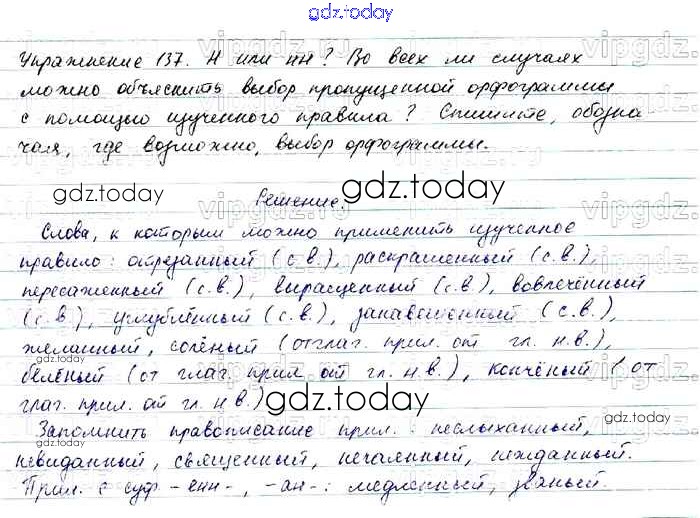 gdz.today
Упражнение 137. Н или нн? Во всех ли случаях
можно объяснить выбор пропущенной орфограммы
с помощью изученного правила? Спишите, обозна
чая, где возможно, выбор орфограммы.
gdz.today
gdz.today
Решение.
Слова, к которым можно применить изученное
правило: отрезанный (с.в.), раскрашенный (с.в.),
пересаженный (с.в.), выращенный (с.в), вовлечённый
(с.в), углублённый (с.в.), занавешенный (с.в.),
желанный, солёный (отглаг. прил. от гл. н.в.),
gdz.today
gdz.today
белёный (от глаг. прил от гл. н.в.), кончёный (от
глаг. прил. от гл. н.в.)
gdz.today
gdz.today
Запомнить правописание прил.: неслыханный,
невиданный, священный, нечаянный, нежданный.
Прил. с суф -енн-, -ан-: медленный, званый.